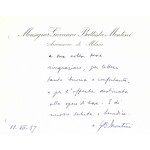 Monsignor Giovanni Battista Montini
Arcivescovo di Milano
e una volta ancora
ringraziare, per lettera
tanto buona e confortante,
e per l'offerta destinata
alle opere di bene. E di
nuovo saluto e benedico
+ GB Montini
12.IX.57